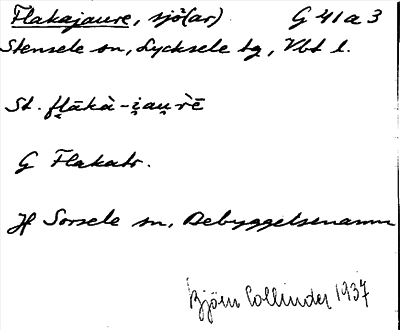 Flakajaure, sjö(ar). G 41 a 3
Stensele sn, Lycksele tg, Vbt l.
St. flākà-i̯au̯rē
G Flakatr.
Jf Sorsele sn, Bebyggelsenamn
Björn Collinder 1937